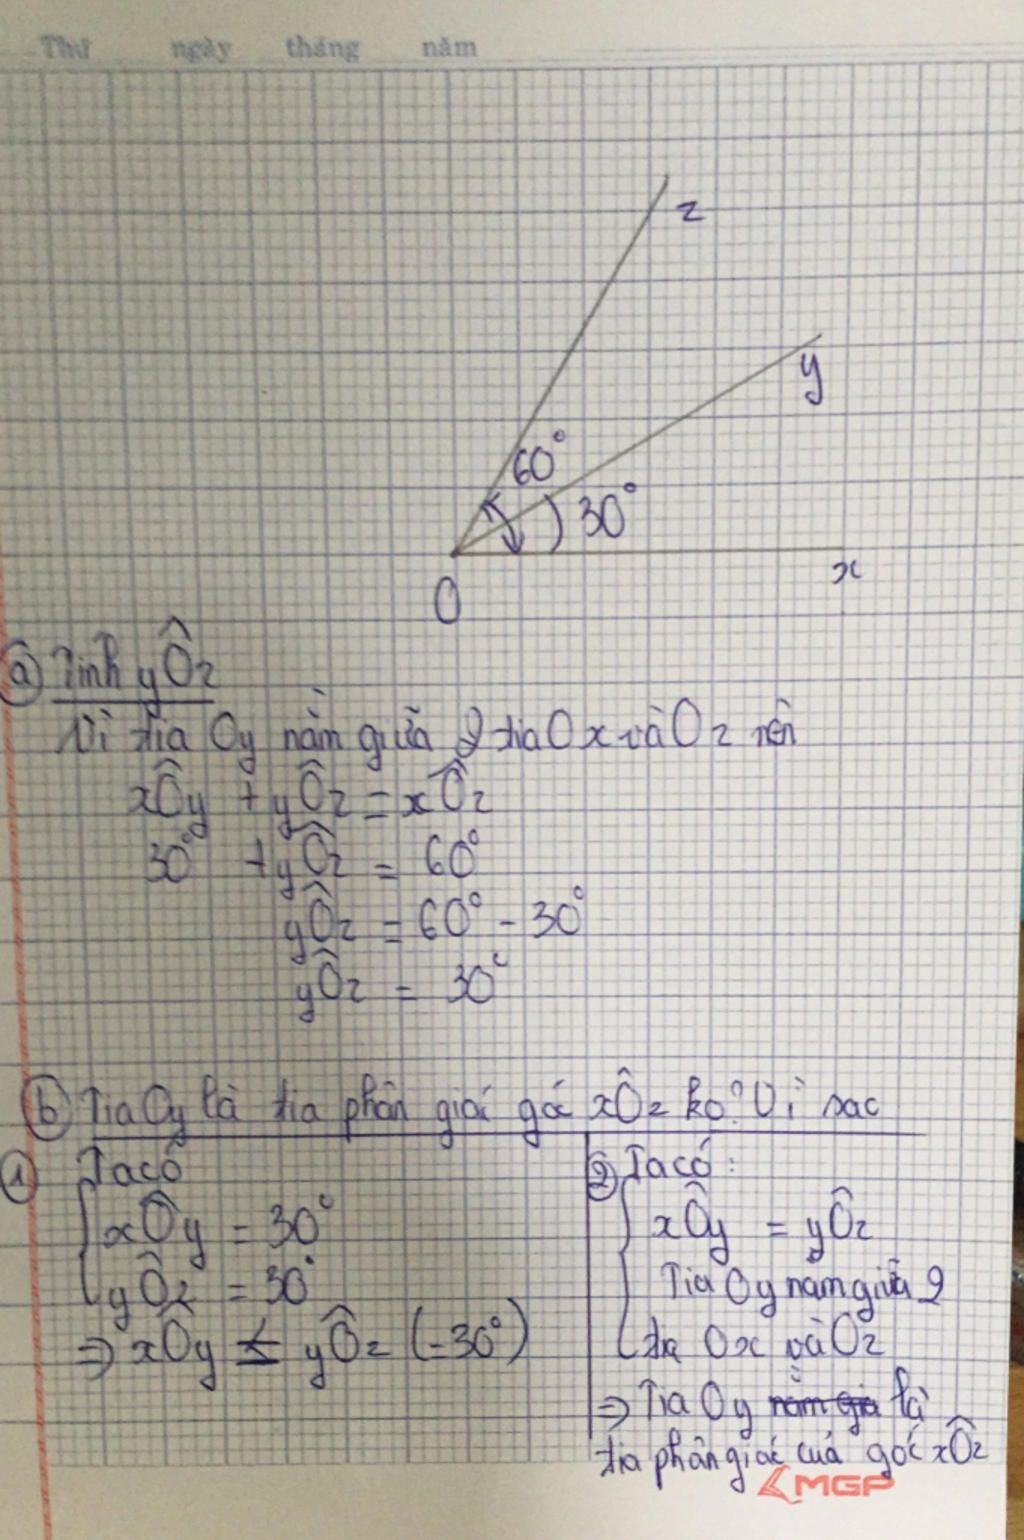 Thứ ngày tháng năm
z
y
60°
30°
x
O
a) Tính yÔz
Vì tia Oy nằm giữa 2 tia Ox và Oz nên
xÔy + yÔz = xÔz
30° + yÔz = 60°
yÔz = 60° - 30°
yÔz = 30°
b) Tia Oy là tia phân giác góc xÔz ko? Vì sao
1) Ta có
xÔy = 30°
yÔz = 30°
⇒ xÔy = yÔz (=30°)
2) Ta có:
xÔy = yÔz
Tia Oy nằm giữa 2
tia Ox và Oz
⇒ Tia Oy nằm giữa là
tia phân giác của góc xÔz
MGP